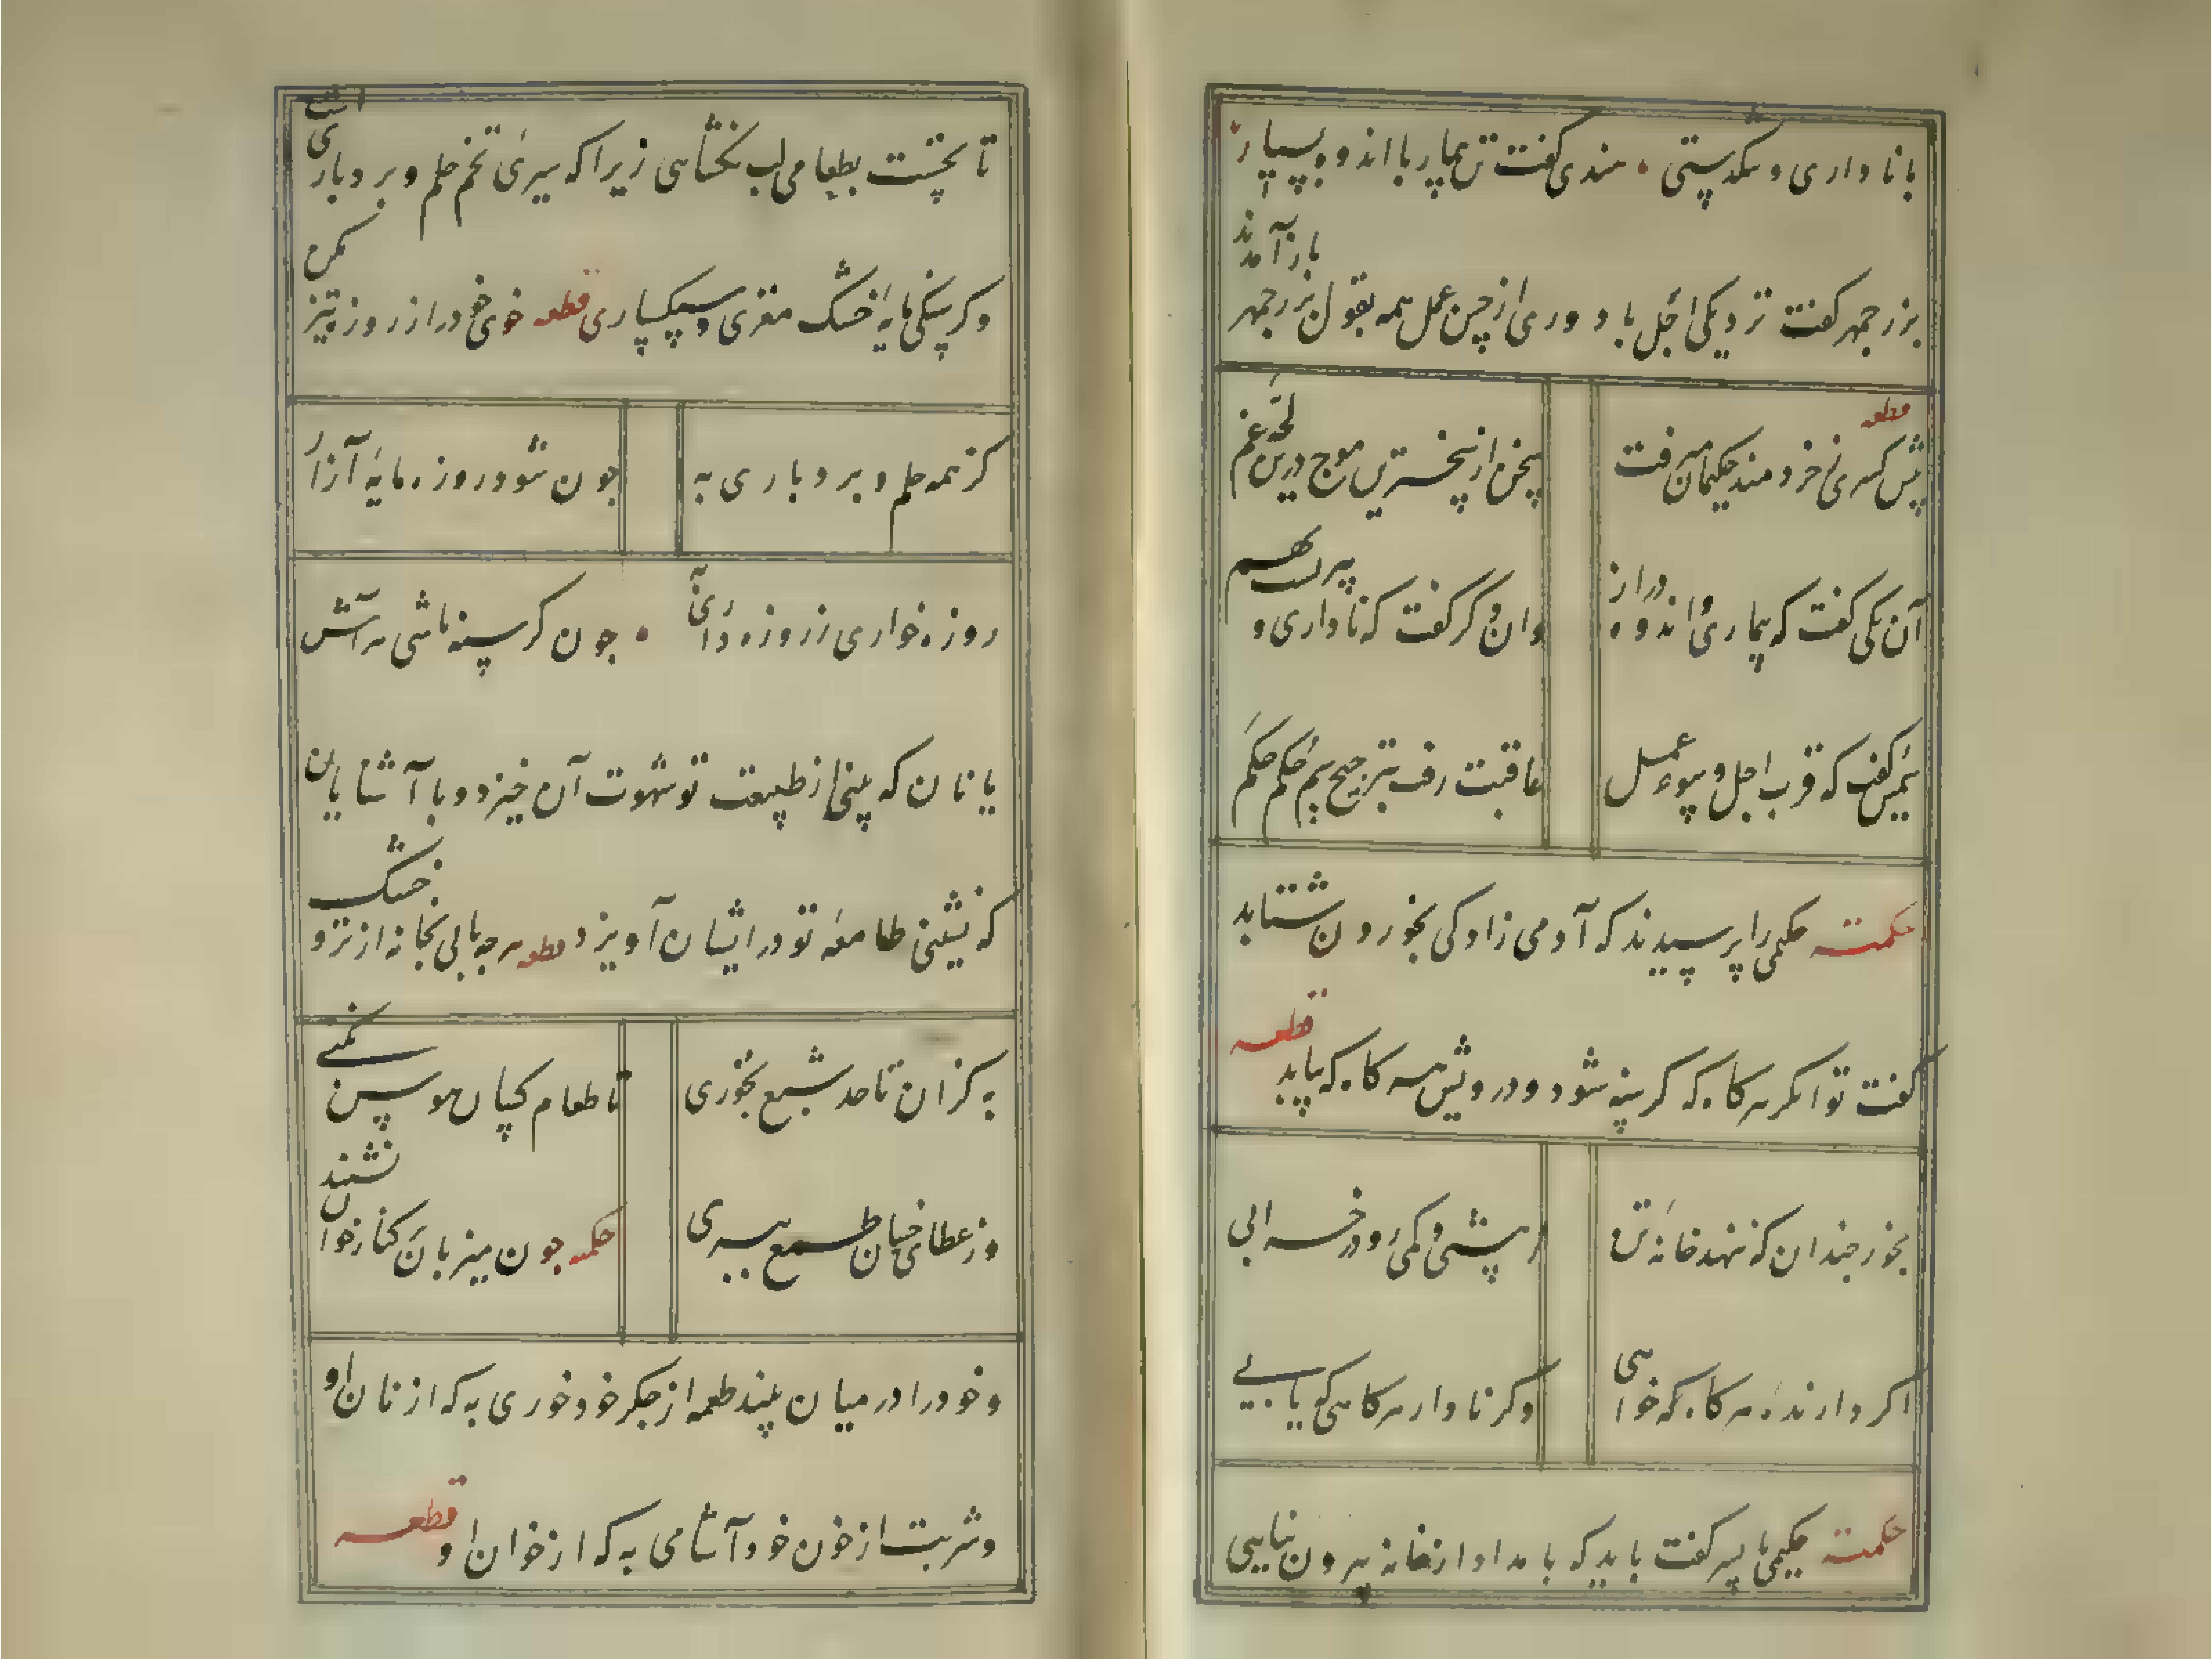 با ناداری و تنگدستی • هندی گفت تن بیمار با اندوه بسیار
بزرجمهر گفت نزدیکی اجل با دوری از حسن عمل همه بقول بزرجمهر
باز آمدند
قطعه
پیش کسری ز خردمند حکیمان میرفت
سخن از سخت ترین موج درین لجه غم
آن یکی گفت که بیماری و اندوه دراز
وان دگر گفت که ناداری و پیریست بهم
سیمین گفت که قرب اجل و سوء عمل
عاقبت رفت بترجیح سیم حکم حکم
حکمت حکیمی را پرسیدند که آدمی زاد کی بخوردن شتابد
گفت توانگر هر گاه که گرسنه شود و درویش هر گاه که بیابد قطعه
بخور چندان که ننهد خانه تن
ز بیشی و کمی رو در خرابی
اگر دارنده هر گاه که خواهی
وگر نادار هر گاهی که یابی
حکمت حکیمی با پسر گفت باید که بامداد از خانه بیرون نیایی
تا نخست بطعامی لب نگشایی زیرا که سیری تخم حلم و بردباری است
و گرسنگی مایه خشک مغزی و سبکساری قطعه خوی خود را ز روزه تیز مکن
کز همه حلم و بردباری به
چون شود روزه مایه آزار
روزه خواری ز روزه داری به • چون گرسنه باشی هر آش
یا نان که بینی از طبیعت تو شهوت آن خیزد و با آشنایان
که نشینی طامعه تو در ایشان آویزد قطعه هر چه یابی بخانه از تر و خشک
به کز آن تا حد شبع بخوری
تا طعام کسان هوس نکنی
وز عطای خسان طمع ببری
حکمه چون میزبان کنار خوان نشیند
و خود را در میان بیند طعمه از جگر خود خوری به که از نان او
و شربت از خون خود آشامی به که از خوان او قطعه